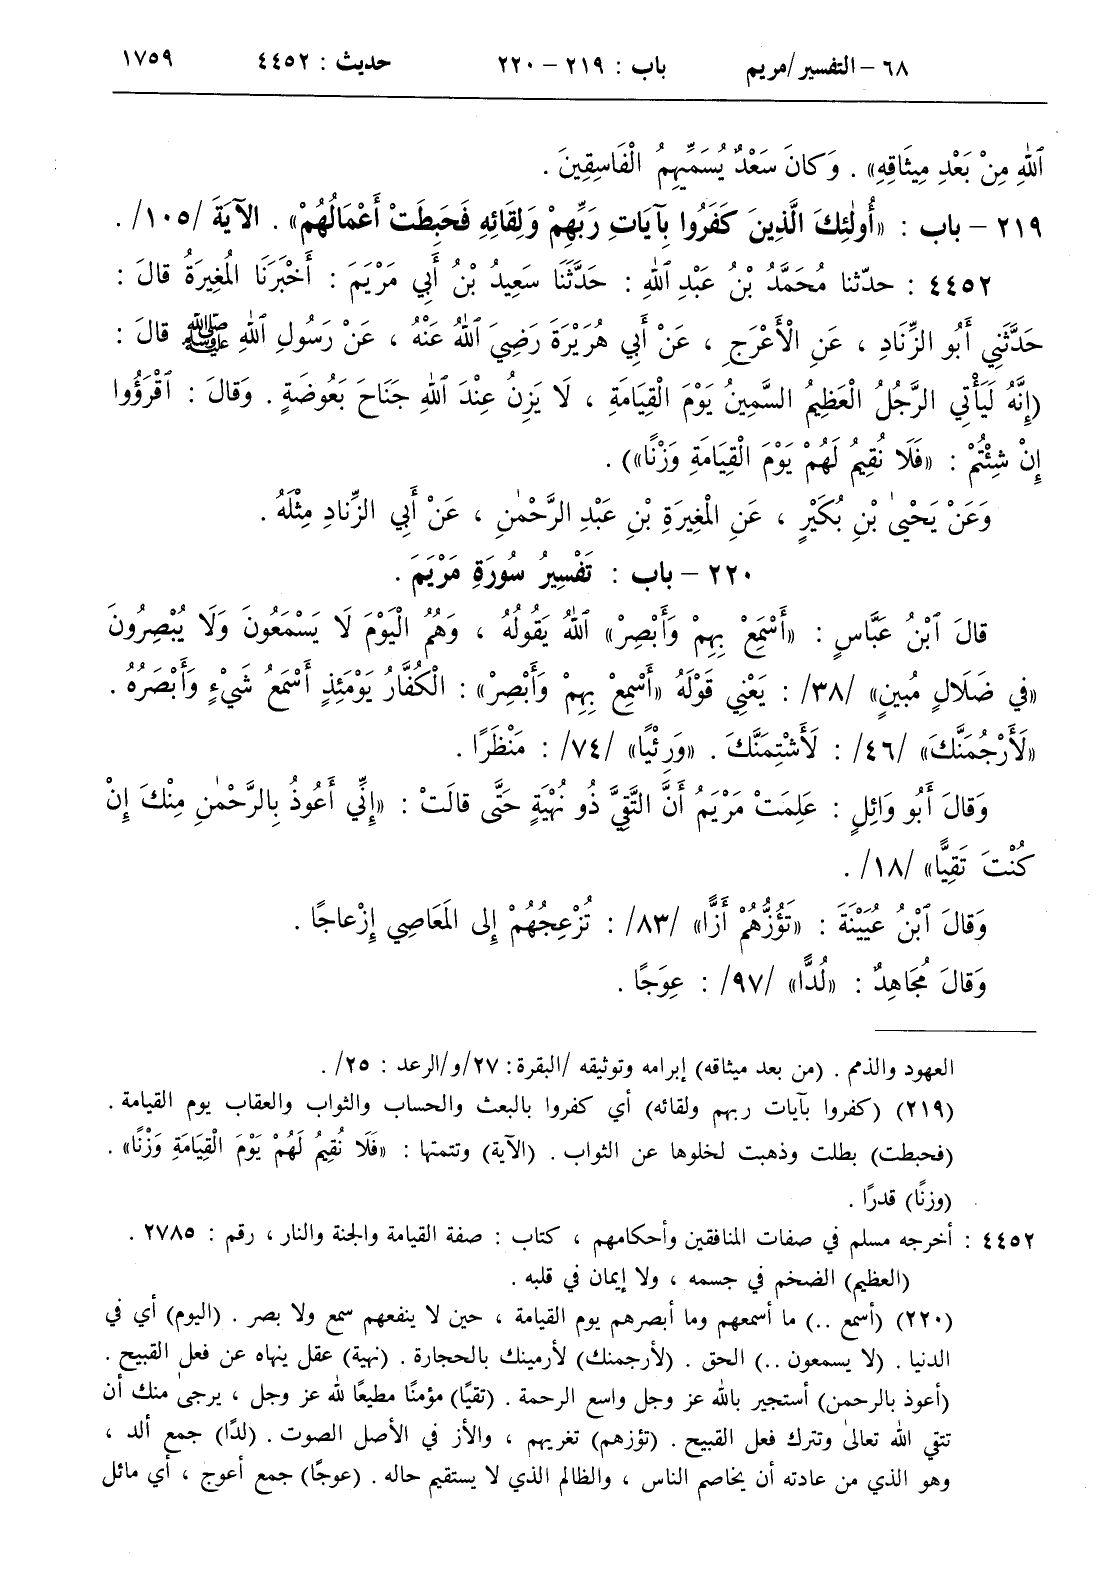 ٦٨ - التفسير/مريم باب : ٢١٩ - ٢٢٠ حديث : ٤٤٥٢ ١٧٥٩
ٱللهِ مِنْ بَعْدِ مِيثَاقِهِ» . وَكانَ سَعْدٌ يُسَمِّيهِمُ الْفَاسِقِينَ .
٢١٩ - باب : «أُولٰئِكَ الَّذِينَ كَفَرُوا بِآيَاتِ رَبِّهِمْ وَلِقَائِهِ فَحَبِطَتْ أَعْمَالُهُمْ» . الآيَةَ /١٠٥/ .
٤٤٥٢ : حدّثنا مُحَمَّدُ بْنُ عَبْدِ اللهِ : حَدَّثَنَا سَعِيدُ بْنُ أَبِي مَرْيَمَ : أَخْبَرَنَا المُغِيرَةُ قالَ :
حَدَّثَنِي أَبُو الزِّنَادِ ، عَنِ الْأَعْرَجِ ، عَنْ أَبِي هُرَيْرَةَ رَضِيَ ٱللهُ عَنْهُ ، عَنْ رَسُولِ ٱللهِ ﷺ قالَ :
(إِنَّهُ لَيَأْتِي الرَّجُلُ الْعَظِيمُ السَّمِينُ يَوْمَ الْقِيَامَةِ ، لَا يَزِنُ عِنْدَ ٱللهِ جَنَاحَ بَعُوضَةٍ . وَقالَ : ٱقْرَؤُوا
إِنْ شِئْتُمْ : «فَلَا نُقِيمُ لَهُمْ يَوْمَ الْقِيَامَةِ وَزْنًا») .
وَعَنْ يَحْيىٰ بْنِ بُكَيْرٍ ، عَنِ الْمُغِيرَةِ بْنِ عَبْدِ الرَّحْمٰنِ ، عَنْ أَبِي الزِّنادِ مِثْلَهُ .
٢٢٠ - باب : تَفْسِيرُ سُورَةِ مَرْيَمَ .
قالَ ٱبْنُ عَبَّاسٍ : «أَسْمِعْ بِهِمْ وَأَبْصِرْ» ٱللهُ يَقُولُهُ ، وَهُمُ الْيَوْمَ لَا يَسْمَعُونَ وَلَا يُبْصِرُونَ
«فِي ضَلَالٍ مُبِينٍ» /٣٨/ : يَعْنِي قَوْلَهُ «أَسْمِعْ بِهِمْ وَأَبْصِرْ» : الْكُفَّارُ يَوْمَئِذٍ أَسْمَعُ شَيْءٍ وَأَبْصَرُهُ .
«لَأَرْجُمَنَّكَ» /٤٦/ : لَأَشْتِمَنَّكَ . «وَرِئْيًا» /٧٤/ : مَنْظَرًا .
وَقالَ أَبُو وَائِلٍ : عَلِمَتْ مَرْيَمُ أَنَّ التَّقِيَّ ذُو نُهْيَةٍ حَتَّى قالَتْ : «إِنِّي أَعُوذُ بِالرَّحْمٰنِ مِنْكَ إِنْ
كُنْتَ تَقِيًّا» /١٨/ .
وَقالَ ٱبْنُ عُيَيْنَةَ : «تَؤُزُّهُمْ أَزًّا» /٨٣/ : تُزْعِجُهُمْ إِلَى المَعَاصِي إِزْعاجًا .
وَقالَ مُجَاهِدٌ : «لُدًّا» /٩٧/ : عِوَجًا .
العهود والذمم . (من بعد ميثاقه) إبرامه وتوثيقه /البقرة: ٢٧/و/الرعد : ٢٥/ .
(٢١٩) (كفروا بآيات ربهم ولقائه) أي كفروا بالبعث والحساب والثواب والعقاب يوم القيامة .
(فحبطت) بطلت وذهبت لخلوها عن الثواب . (الآية) وتتمتها : «فَلَا نُقِيمُ لَهُمْ يَوْمَ الْقِيَامَةِ وَزْنًا» .
(وزنًا) قدرًا .
٤٤٥٢ : أخرجه مسلم في صفات المنافقين وأحكامهم ، كتاب : صفة القيامة والجنة والنار ، رقم : ٢٧٨٥ .
(العظيم) الضخم في جسمه ، ولا إيمان في قلبه .
(٢٢٠) (أسمع ..) ما أسمعهم وما أبصرهم يوم القيامة ، حين لا ينفعهم سمع ولا بصر . (اليوم) أي في
الدنيا . (لا يسمعون ..) الحق . (لأرجمنك) لأرمينك بالحجارة . (نهية) عقل ينهاه عن فعل القبيح .
(أعوذ بالرحمن) أستجير بالله عز وجل واسع الرحمة . (تقيًا) مؤمنًا مطيعًا لله عز وجل ، يرجىٰ منك أن
تتقي الله تعالىٰ وتترك فعل القبيح . (تؤزهم) تغريهم ، والأز في الأصل الصوت . (لدًا) جمع ألد ،
وهو الذي من عادته أن يخاصم الناس ، والظالم الذي لا يستقيم حاله . (عوجًا) جمع أعوج ، أي مائل